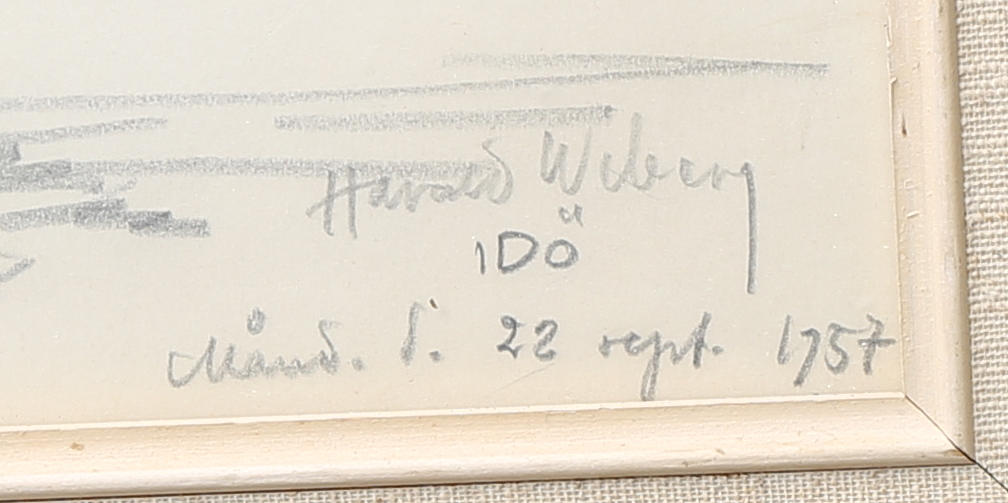 Harald Wiberg
IDÖ
Månd. d. 23 sept. 1957